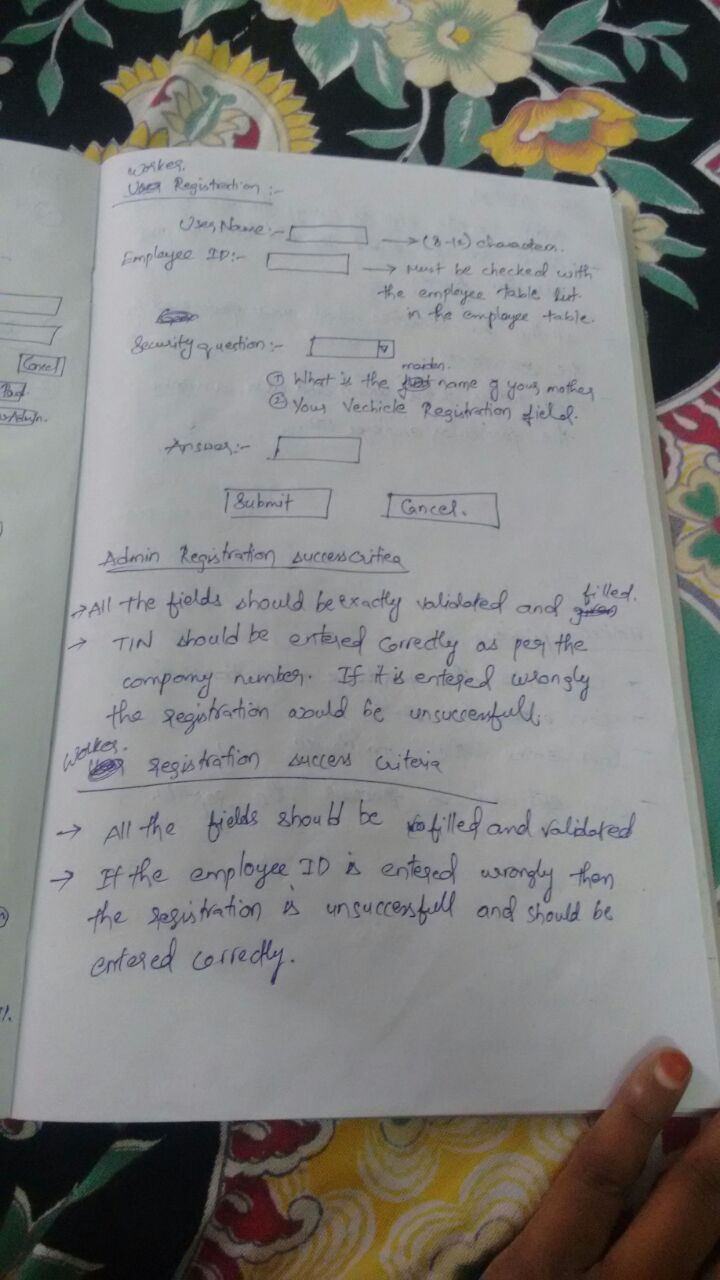 Cancel
Worker.
User Registration :-
User Name:-
→ (8-12) characters.
Employee ID:-
→ Must be checked with
the employee table list
in the employee table.
Security question:-
maiden.
① What is the name of your mother
② Your Vechicle Registration field.
Answer:-
Submit
Cancel.
Admin Registration success critiea
→ All the fields should be exactly validated and filled.
→ TIN should be entered correctly as per the
company number. If it is entered wrongly
the registration would be unsuccessfull.
Worker.
registration success criteria
→ All the fields should be filled and validated
→ If the employee ID is entered wrongly then
the registration is unsuccessfull and should be
entered correctly.